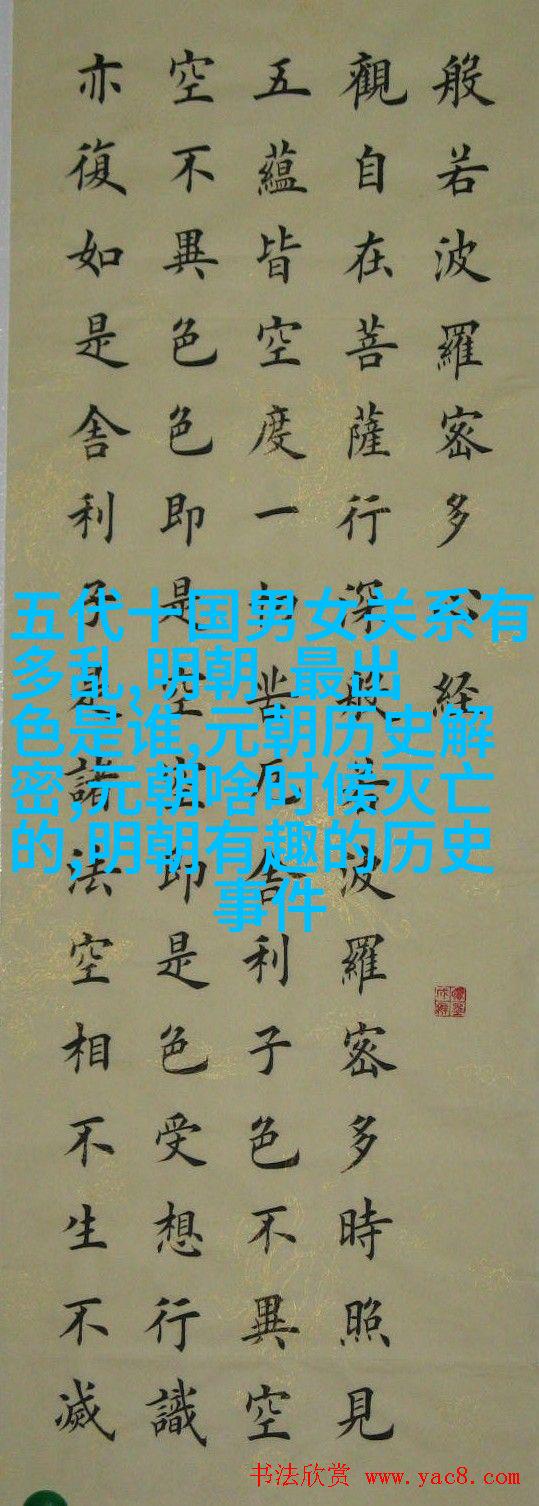 般若波羅密多心経
觀自在菩薩行深般若波羅密多時照見
五蘊皆空度一切苦厄舎利子色不異空
空不異色色即是空空即是色受想行識
亦復如是舎利子是諸法空相不生不滅
五代十国男女关系有
多乱,明朝 最出
色是谁,元朝历史解
密,元朝啥时候灭亡
的,明朝有趣的历史
事件
书法欣赏 www.yac8.com